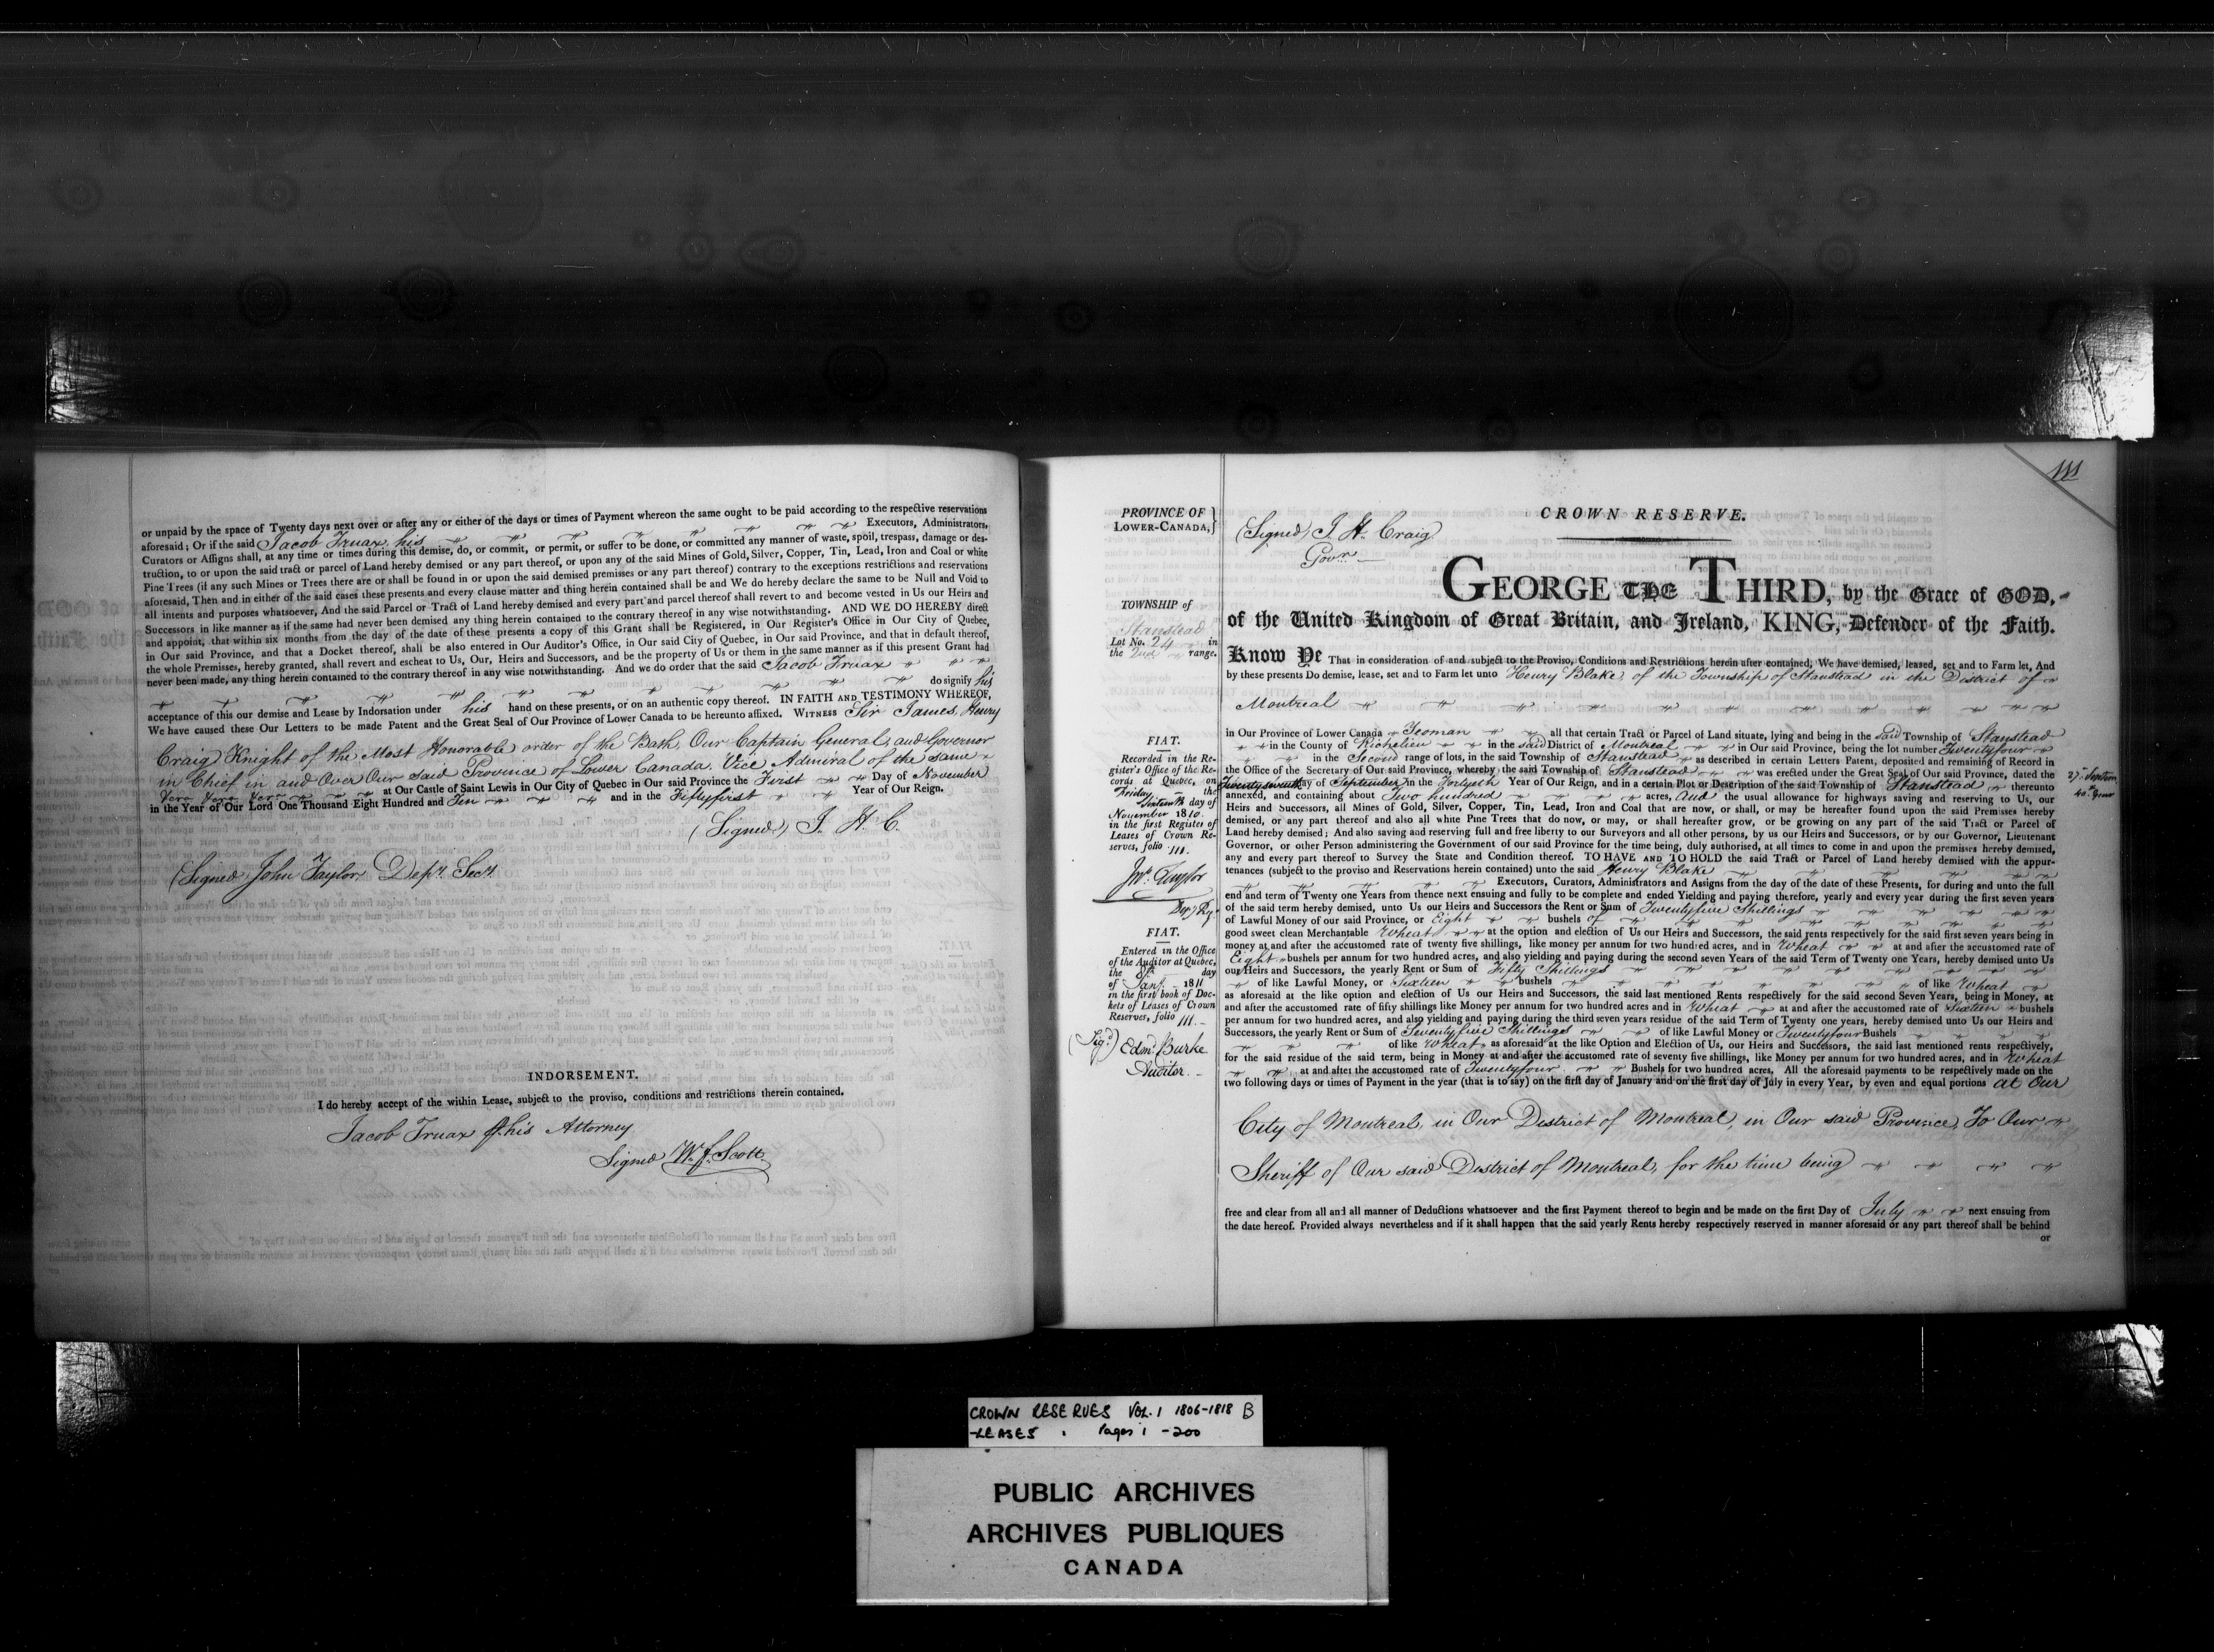 or unpaid by the space of Twenty days next over or after any or either of the days or times of Payment whereon the same ought to be paid according to the respective reservations
aforesaid; Or if the said Jacob Truax, his Executors, Administrators,
Curators or Assigns shall, at any time or times during this demise, do, or commit, or permit, or suffer to be done, or committed any manner of waste, spoil, trespass, damage or des-
truction, to or upon the said tract or parcel of Land hereby demised or any part thereof, or upon any of the said Mines of Gold, Silver, Copper, Tin, Lead, Iron and Coal or white
Pine Trees (if any such Mines or Trees there are or shall be found in or upon the said demised premisses or any part thereof) contrary to the exceptions restrictions and reservations
aforesaid, Then and in either of the said cases these presents and every clause matter and thing herein contained shall be and We do hereby declare the same to be Null and Void to
all intents and purposes whatsoever, And the said Parcel or Tract of Land hereby demised and every part and parcel thereof shall revert to and become vested in Us our Heirs and
Successors in like manner as if the same had never been demised any thing herein contained to the contrary thereof in any wise notwithstanding. AND WE DO HEREBY direct
and appoint, that within six months from the day of the date of these presents a copy of this Grant shall be Registered, in Our Register's Office in Our City of Quebec,
in Our said Province, and that a Docket thereof, shall be also entered in Our Auditor's Office, in Our said City of Quebec, in Our said Province, and that in default thereof,
the whole Premisses, hereby granted, shall revert and escheat to Us, Our, Heirs and Successors, and be the property of Us or them in the same manner as if this present Grant had
never been made, any thing herein contained to the contrary thereof in any wise notwithstanding. And we do order that the said Jacob Truax
do signify his
acceptance of this our demise and Lease by Indorsation under his hand on these presents, or on an authentic copy thereof. IN FAITH AND TESTIMONY WHEREOF,
We have caused these Our Letters to be made Patent and the Great Seal of Our Province of Lower Canada to be hereunto affixed. WITNESS Sir James Henry
Craig Knight of the Most Honorable order of the Bath, Our Captain General, and Governor
in Chief in and Over Our said Province of Lower Canada, Vice Admiral of the same
at Our Castle of Saint Lewis in Our City of Quebec in Our said Province the First Day of November
in the Year of Our Lord One Thousand Eight Hundred and Ten and in the Fiftyfirst Year of Our Reign.
(Signed) J. H. C.
(Signed) John Taylor, Depy. Secy.
INDORSEMENT.
I do hereby accept of the within Lease, subject to the proviso, conditions and restrictions therein contained.
Jacob Truax his Attorney
Signed W. f. Scott
111
PROVINCE OF
LOWER-CANADA,}
CROWN RESERVE.
(Signed) J. H. Craig
Govr.
GEORGE THE THIRD, by the Grace of GOD,
of the United Kingdom of Great Britain, and Ireland, KING, Defender of the Faith.
TOWNSHIP of
Stanstead
Lot No. 24 in
the 2nd range.
Know Ye That in consideration of and subject to the Proviso, Conditions and Restrictions herein after contained, We have demised, leased, set and to Farm let, And
by these presents Do demise, lease, set and to Farm let unto Henry Blake, of the Township of Stanstead in the District of
Montreal
in Our Province of Lower Canada Yeoman all that certain Tract or Parcel of Land situate, lying and being in the said Township of Stanstead
in the County of Richelieu in the said District of Montreal in Our said Province, being the lot number Twentyfour
in the Second range of lots, in the said Township of Stanstead as described in certain Letters Patent, deposited and remaining of Record in
the Office of the Secretary of Our said Province, whereby the said Township of Stanstead was erected under the Great Seal of Our said Province, dated the
Twentyseventh day of September in the Fortyeth Year of Our Reign, and in a certain Plot or Description of the said Township of Stanstead thereunto
annexed, and containing about Two hundred acres, and the usual allowance for highways saving and reserving to Us, our
Heirs and Successors, all Mines of Gold, Silver, Copper, Tin, Lead, Iron and Coal that are now, or shall, or may be hereafter found upon the said Premisses hereby
demised, or any part thereof and also all white Pine Trees that do now, or may, or shall hereafter grow, or be growing on any part of the said Tract or Parcel of
Land hereby demised; And also saving and reserving full and free liberty to our Surveyors and all other persons, by us our Heirs and Successors, or by our Governor, Lieutenant
Governor, or other Person administering the Government of our said Province for the time being, duly authorised, at all times to come in and upon the premisses hereby demised,
any and every part thereof to Survey the State and Condition thereof. TO HAVE AND TO HOLD the said Tract or Parcel of Land hereby demised with the appur-
tenances (subject to the proviso and Reservations herein contained) unto the said Henry Blake
Executors, Curators, Administrators and Assigns from the day of the date of these Presents, for during and unto the full
end and term of Twenty one Years from thence next ensuing and fully to be complete and ended Yielding and paying therefore, yearly and every year during the first seven years
of the said term hereby demised, unto Us our Heirs and Successors the Rent or Sum of Twentyfive Shillings
of Lawful Money of our said Province, or Eight bushels of
good sweet clean Merchantable Wheat at the option and election of Us our Heirs and Successors, the said rents respectively for the said first seven years being in
money at and after the accustomed rate of twenty five shillings, like money per annum for two hundred acres, and in Wheat at and after the accustomed rate of
Eight bushels per annum for two hundred acres, and also yielding and paying during the second seven Years of the said Term of Twenty one Years, hereby demised unto Us
our Heirs and Successors, the yearly Rent or Sum of Fifty Shillings
of like Lawful Money, or Sixteen bushels of like Wheat
as aforesaid at the like option and election of Us our Heirs and Successors, the said last mentioned Rents respectively for the said second Seven Years, being in Money, at
and after the accustomed rate of fifty shillings like Money per annum for two hundred acres and in Wheat at and after the accustomed rate of Sixteen bushels
per annum for two hundred acres, and also yielding and paying during the third seven years residue of the said Term of Twenty one years, hereby demised unto Us our Heirs and
Successors, the yearly Rent or Sum of Seventyfive Shillings of like Lawful Money or Twentyfour Bushels
of like Wheat as aforesaid at the like Option and Election of Us, our Heirs and Successors, the said last mentioned rents respectively,
for the said residue of the said term, being in Money at and after the accustomed rate of seventy five shillings, like Money per annum for two hundred acres, and in Wheat
at and after the accustomed rate of Twentyfour Bushels for two hundred acres, All the aforesaid payments to be respectively made on the
two following days or times of Payment in the year (that is to say) on the first day of January and on the first day of July in every Year, by even and equal portions at Our
City of Montreal, in Our District of Montreal, in Our said Province, To Our
Sheriff of Our said District of Montreal, for the time being
free and clear from all and all manner of Deductions whatsoever and the first Payment thereof to begin and be made on the first Day of July next ensuing from
the date hereof. Provided always nevertheless and if it shall happen that the said yearly Rents hereby respectively reserved in manner aforesaid or any part thereof shall be behind
or
FIAT.
Recorded in the Re-
gister's Office of the Re-
cords at Quebec, on
Friday the
Sixteenth day of
November 1810.
in the first Register of
Leases of Crown Re-
serves, folio 111.
Jno. Taylor
Depy Rg.
FIAT.
Entered in the Office
of the Auditor at Quebec,
the 8th day
of Jany. 1811
in the first book of Doc-
kets of Leases of Crown
Reserves, folio 111.
(Sigd) Edmd. Burke
Auditor.
CROWN RESERVES VOL. 1 1806-1818 B
-LEASES Pages i -200
PUBLIC ARCHIVES
ARCHIVES PUBLIQUES
CANADA